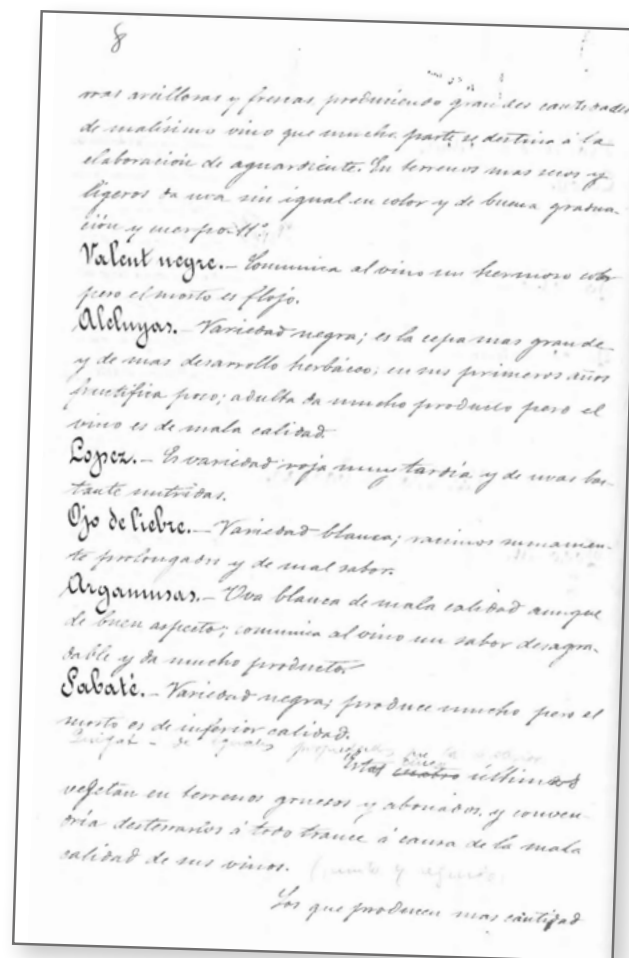 8
rras arcillosas y frescas, produciendo grandes cantidades
de malisimo vino que mucha parte se destina á la
elaboración de aguardiente. En terrenos mas secos y
ligeros da uva sin igual en color y de buena gradua-
ción y cuerpo. 11°
Valent negre.- Comunica al vino un hermoso color
pero el mosto es flojo.
Aleluyas.- Variedad negra; es la cepa mas grande
y de mas desarrollo herbáceo; en sus primeros años
fructifica poco; adulta da mucho producto pero el
vino es de mala calidad.
Lopez.- Es variedad roja muy tardia y de uvas bas-
tante nutridas.
Ojo de liebre.- Variedad blanca; racimos sumamen-
te prolongados y de mal sabor.
Argamusas.- Uva blanca de mala calidad aunque
de buen aspecto; comunica al vino un sabor desagra-
dable y da mucho producto.
Sabaté.- Variedad negra; produce mucho pero el
mosto es de inferior calidad.
- de iguales propiedades que la
Estas cuatro últimas
vegetan en terrenos gruesos y abonados, y conven-
dría desterrarlos á todo trance á causa de la mala
calidad de sus vinos.
Los que producen mas cantidad